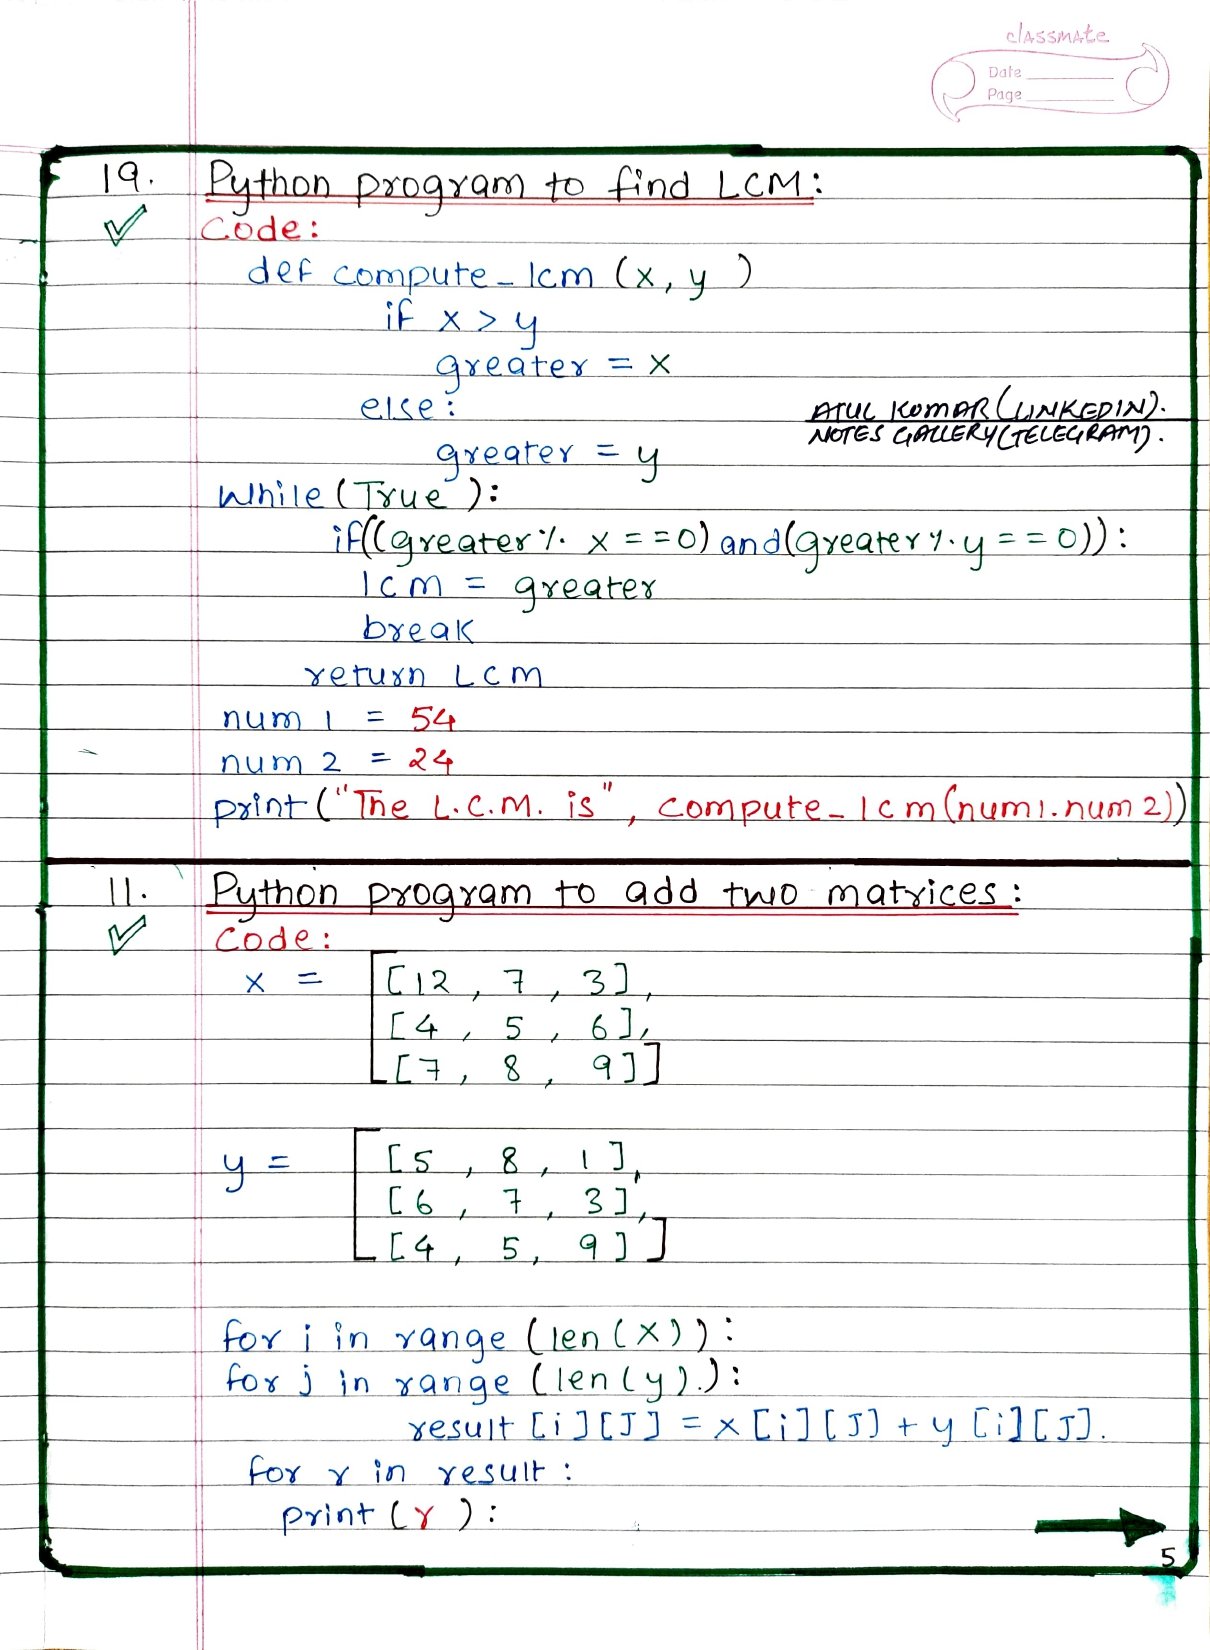 classmate
Date
Page
19. Python program to find LCM:
Code:
def compute_lcm (x, y )
if x > y
greater = x
else :
greater = y
ATUL KUMAR (LINKEDIN).
NOTES GALLERY (TELEGRAM).
While (True ):
if((greater % x == 0) and (greater % y == 0)):
lcm = greater
break
return Lcm
num 1 = 54
num 2 = 24
print ("The L.C.M. is", compute_lcm(num1.num2))
11. Python program to add two matrices:
Code:
x = [[12 , 7 , 3],
[4 , 5 , 6],
[7, 8 , 9]]
y = [[5 , 8 , 1],
[6 , 7 , 3],
[4 , 5, 9]]
for i in range (len (X)) :
for j in range (len (y).) :
result [i][J] = x [i][J] + y [i][J].
for r in result :
print (r ) :
5